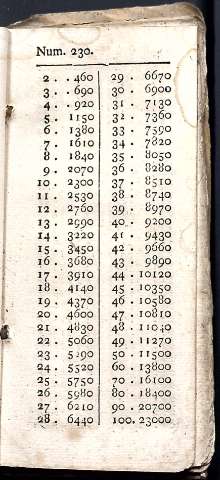 Num. 230.
2 . . 460
3 . . 690
4 . . 920
5 . 1150
6 . 1380
7 . 1610
8 . 1840
9 . 2070
10 . 2300
11 . 2530
12 . 2760
13 . 2990
14 . 3220
15 . 3450
16 . 3680
17 . 3910
18 . 4140
19 . 4370
20 . 4600
21 . 4830
22 . 5060
23 . 5290
24 . 5520
25 . 5750
26 . 5980
27 . 6210
28 . 6440
29 . 6670
30 . 6900
31 . 7130
32 . 7360
33 . 7590
34 . 7820
35 . 8050
36 . 8280
37 . 8510
38 . 8740
39 . 8970
40 . 9200
41 . 9430
42 . 9660
43 . 9890
44 . 10120
45 . 10350
46 . 10580
47 . 10810
48 . 11040
49 . 11270
50 . 11500
60 . 13800
70 . 16100
80 . 18400
90 . 20700
100. 23000